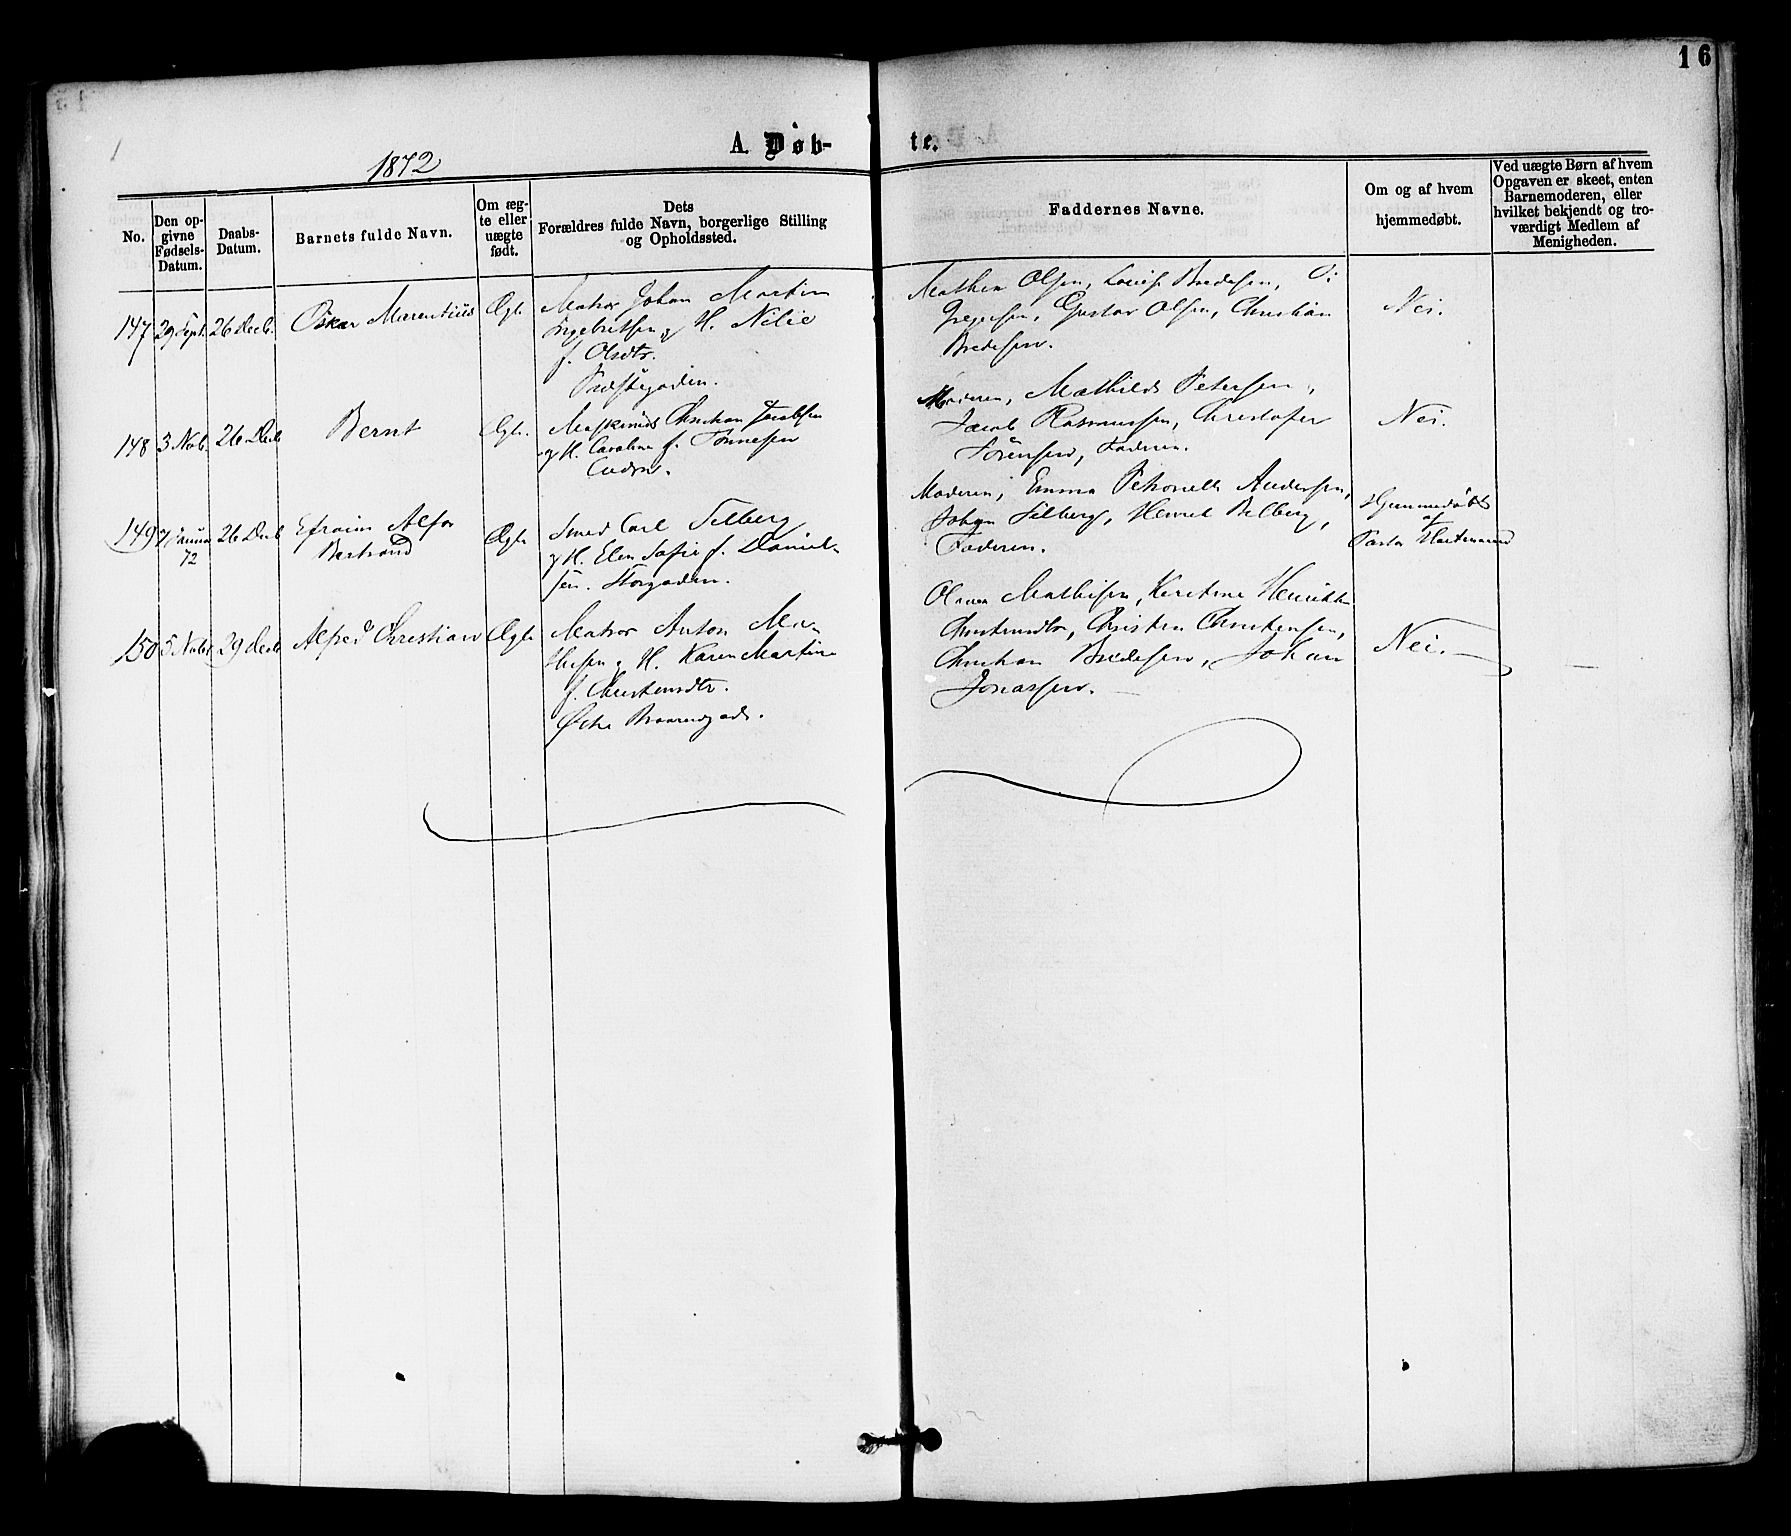 16
A. Døb-
te.
1872
No.
Den op-
givne
Fødsels-
Datum.
Daabs-
Datum.
Barnets fulde Navn.
Om æg-
te eller
uægte
født.
Dets
Forældres fulde Navn, borgerlige Stilling
og Opholdssted.
Faddernes Navne.
Om og af hvem
hjemmedøbt.
Ved uægte Børn af hvem
Opgaven er skeet, enten
Barnemoderen, eller
hvilket bekjendt og tro-
værdigt Medlem af
Menigheden.
147
29 Sept.
26 Decb.
Oskar Marentius
Ægte
Matros Johan Martin
Ingebritsen og H. Nilie
f. Olsdtr.
Olsen, Louise Bredesen,
Gregersen, Gustav Olsen, Christian
Bredesen.
Nei.
148
3 Novb.
26 Decb
Bernt
Ægte.
Christian Jacobsen
og H. Caroline f. Tønnesen
Moderen, Mathilde Petersen,
Jacob Rasmussen, Christofer
Sørensen, Faderen.
Nei.
149
72
26 Decb
Efraim Alfon
Bertrand
Ægte
Smed Carl Selberg
og H. Elen Sofie f. Daniel-
sen. Storgaden.
Moderen, Emma Petronelle Andersen,
Johan Selberg, Henrik
Faderen.
Hjemmedøbt
af
Pastor
150
5 Novbr
29 Decb
Alfred Christian
Ægte
Matros Anton Ma-
thisen og H. Karen Martine
f. Christensdtr.
Mathisen, Kirstine Henrikke
Christensdtr, Christen Christensen,
Christian Bredesen, Johan
Jonassen.
Nei.